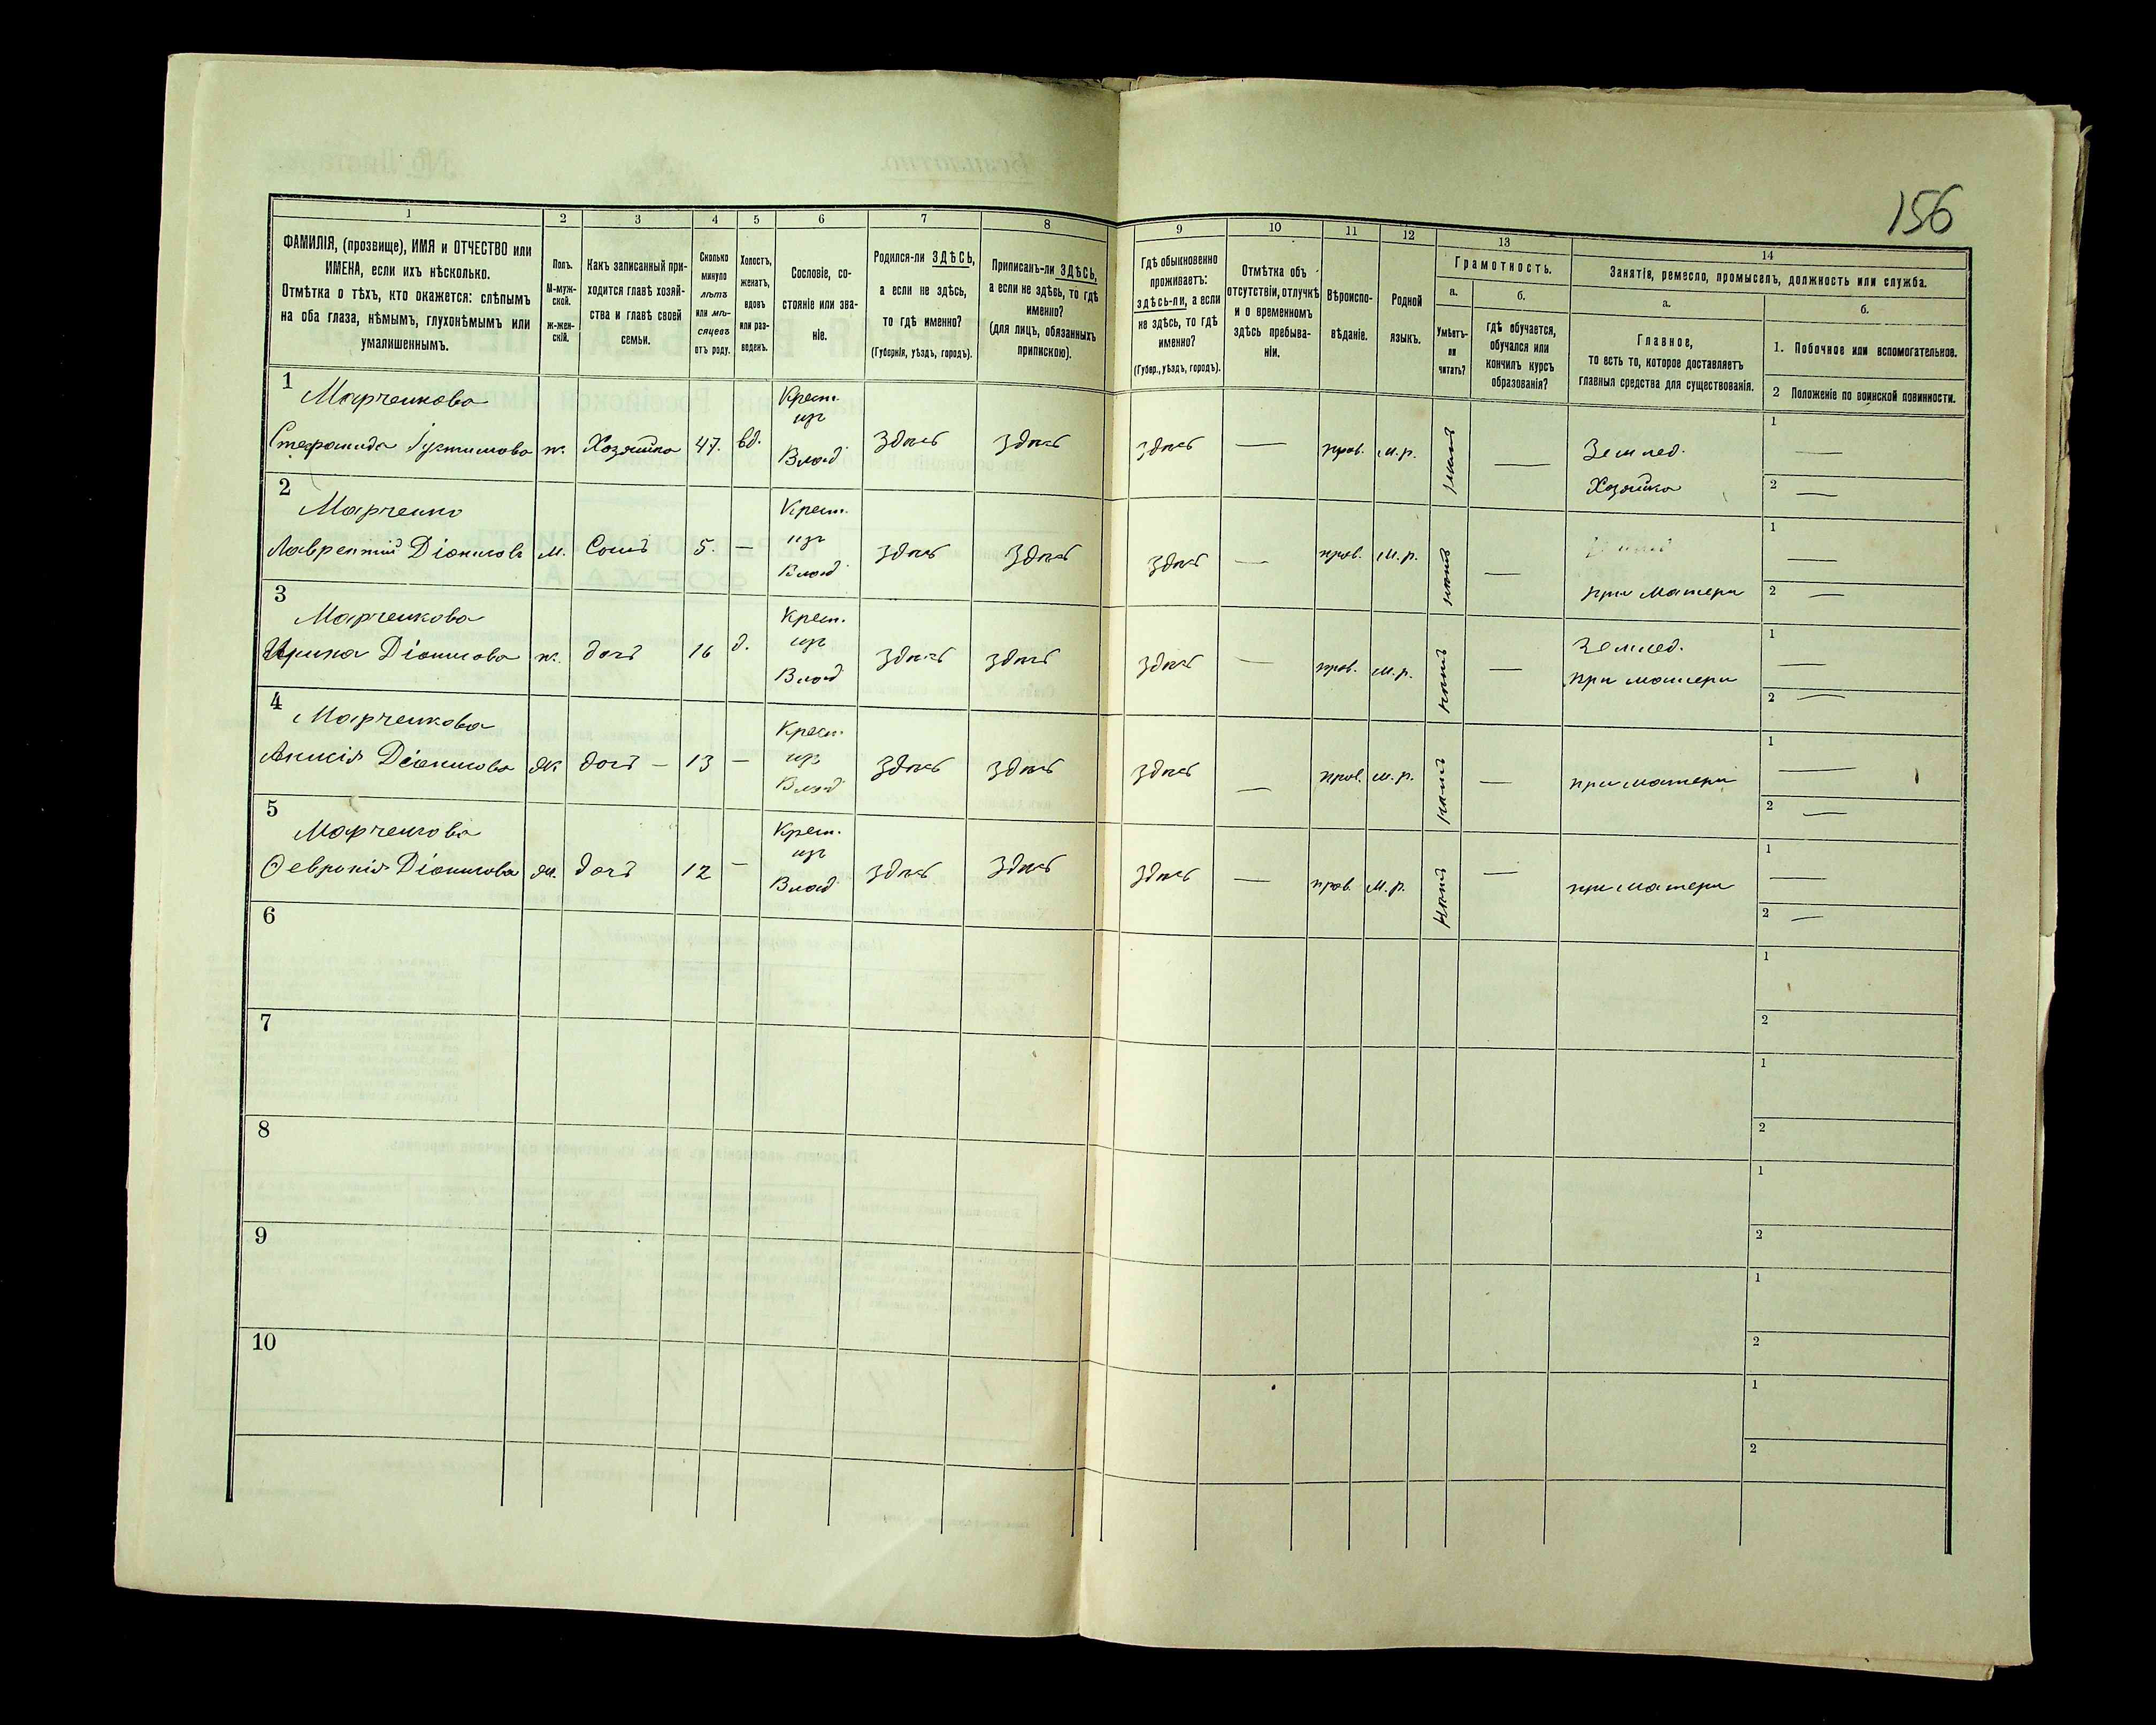 156
1 2 3 4 5 6 7 8 9 10 11 12 13 14
ФАМИЛІЯ, (прозвище), ИМЯ и ОТЧЕСТВО или
ИМЕНА, если ихъ нѣсколько.
Отмѣтка о тѣхъ, кто окажется: слѣпымъ
на оба глаза, нѣмымъ, глухонѣмымъ или
умалишеннымъ.
Полъ.
М-муж-
ской.
ж-жен-
скій.
Какъ записанный при-
ходится главѣ хозяй-
ства и главѣ своей
семьи.
Сколько
минуло
лѣтъ
или мѣ-
сяцевъ
отъ роду.
Холостъ,
женатъ,
вдовъ
или раз-
веденъ.
Сословіе, со-
стояніе или зва-
ніе.
Родился-ли ЗДѢСЬ,
а если не здѣсь,
то гдѣ именно?
(Губернія, уѣздъ, городъ).
Приписанъ-ли ЗДѢСЬ,
а если не здѣсь, то гдѣ
именно?
(для лицъ, обязанныхъ
припискою).
Гдѣ обыкновенно
проживаетъ:
здѣсь-ли, а если
не здѣсь, то гдѣ
именно?
(Губер., уѣздъ, городъ).
Отмѣтка объ
отсутствіи, отлучкѣ
и о временномъ
здѣсь пребыва-
ніи.
Вѣроиспо-
вѣданіе.
Родной
языкъ.
Грамотность.
а.
Умѣетъ-
ли
читать?
б.
гдѣ обучается,
обучался или
кончилъ курсъ
образованія?
Занятіе, ремесло, промыселъ, должность или служба.
а.
Главное,
то есть то, которое доставляетъ
главныя средства для существованія.
б.
1. Побочное или вспомогательное.
2 Положеніе по воинской повинности.
1 Марченкова Крест. 1
изъ
Стефанида Іустинова ж. Хозяйка 47. вд. Влад здѣсь здѣсь здѣсь — прав. м.р. — Землед. —
Хозяйка 2 —
2 Марченко Крест. 1
изъ
Лаврентій Діонисовъ м. Сынъ 5. — Влад здѣсь здѣсь здѣсь — прав. м.р. нѣтъ — —
при матери 2 —
3 Марченкова Крест. Землед. 1
изъ
Ирина Діонисова ж. дочь 16 д. Влад здѣсь здѣсь здѣсь — прав. м.р. нѣтъ — при матери —
2 —
4 Марченкова Крест. 1
изъ
Анисія Діонисова ж дочь — 13 — Влад здѣсь здѣсь здѣсь — прав. м.р. нѣтъ — при матери —
2 —
5 Марченкова Крест. 1
изъ
Февронія Діонисова ж. дочь 12 — Влад здѣсь здѣсь здѣсь — прав. м.р. нѣтъ — при матери —
2 —
6 1
2
7 1
2
8 1
2
9 1
2
10 1
2